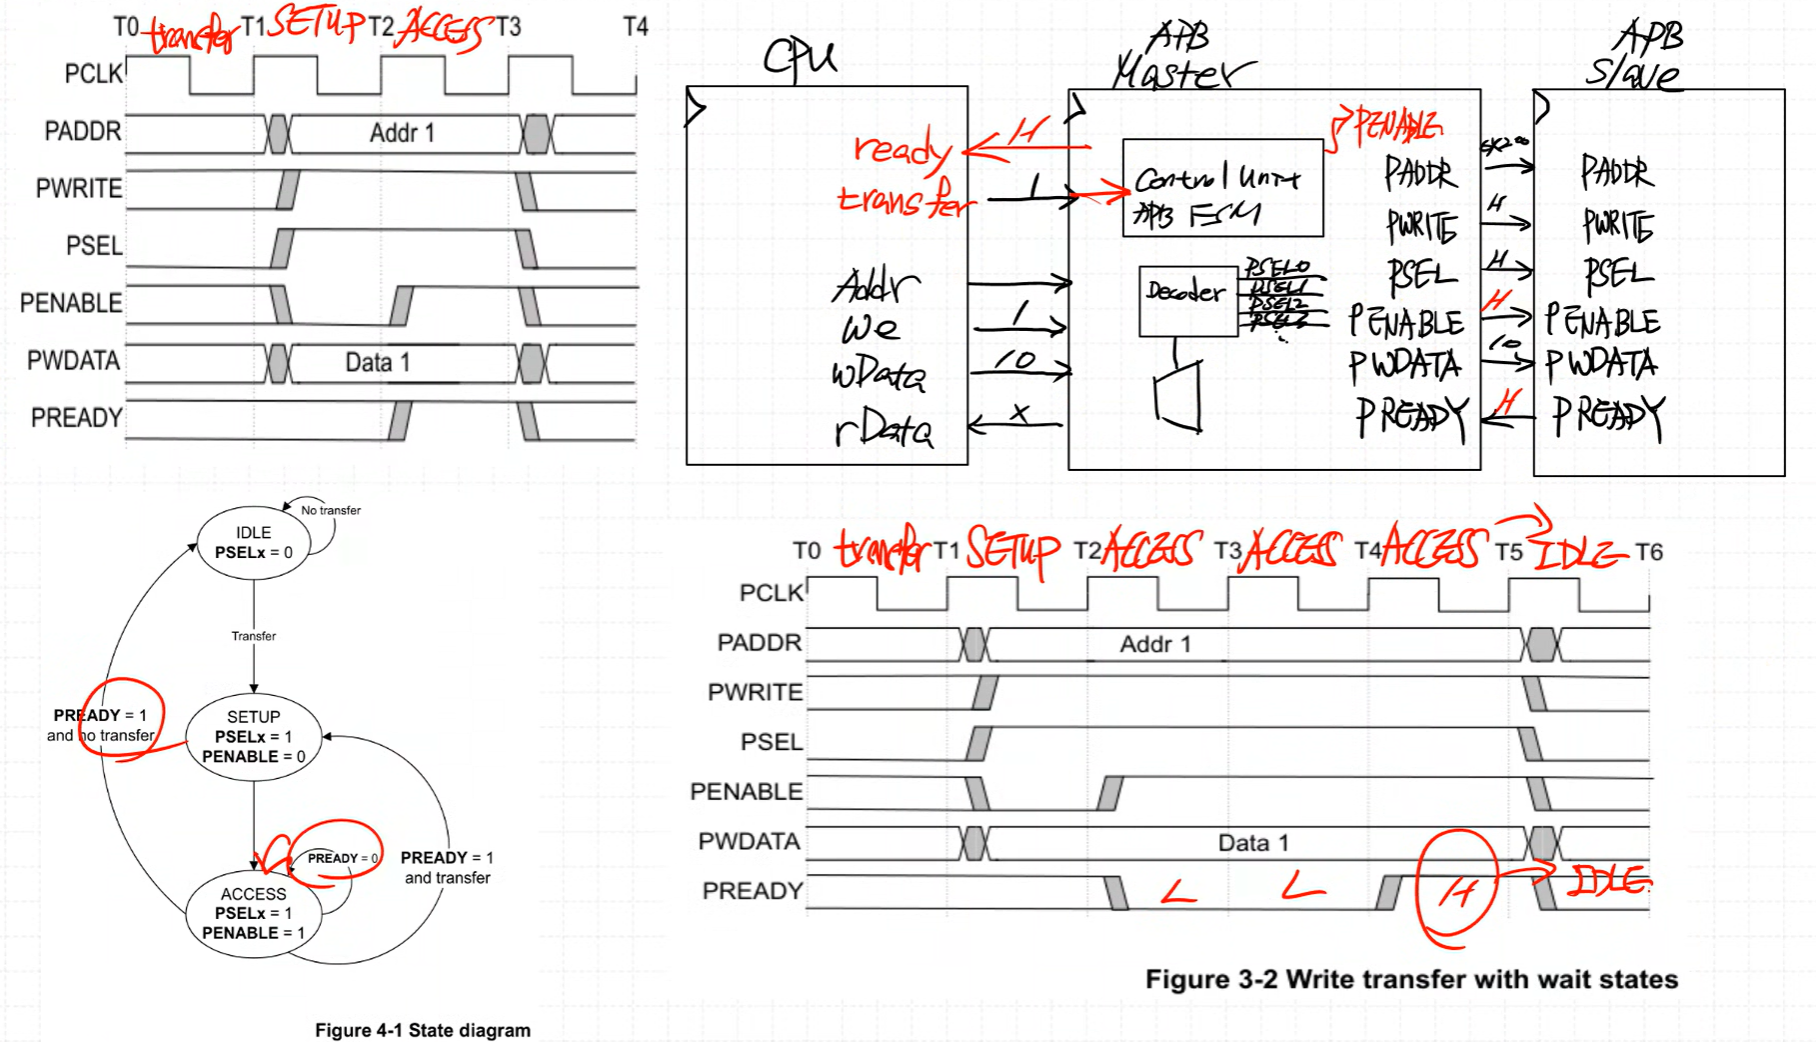 T0 transfer T1 SETUP T2 ACCESS T3 T4
PCLK
PADDR Addr 1
PWRITE
PSEL
PENABLE
PWDATA Data 1
PREADY
CPU
ready
transfer
Addr
We
wData
rData
H
1
1
10
x
APB
Master
Control Unit
APB FSM
PENABLE
Decoder
PSEL0
PSEL1
PSEL2
PSEL3
PADDR
PWRITE
PSEL
PENABLE
PWDATA
PREADY
H
H
H
10
H
APB
Slave
PADDR
PWRITE
PSEL
PENABLE
PWDATA
PREADY
No transfer
IDLE
PSELx = 0
Transfer
PREADY = 1
and no transfer
SETUP
PSELx = 1
PENABLE = 0
PREADY = 0
PREADY = 1
and transfer
ACCESS
PSELx = 1
PENABLE = 1
Figure 4-1 State diagram
T0 transfer T1 SETUP T2 ACCESS T3 ACCESS T4 ACCESS T5 IDLE T6
PCLK
PADDR Addr 1
PWRITE
PSEL
PENABLE
PWDATA Data 1
PREADY L L H IDLE
Figure 3-2 Write transfer with wait states